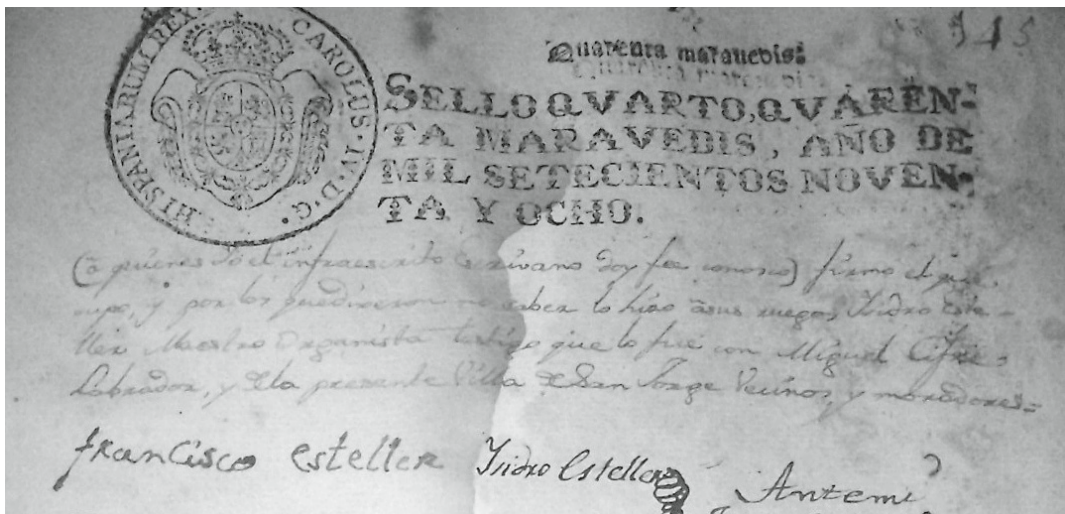 945
HISPANIARUM REX. CAROLUS·IV·D·G·
Quarenta maravedis.
Quarenta maravedis.
SELLO QVARTO, QVAREN-
TA MARAVEDIS, AÑO DE
MIL SETECIENTOS NOVEN-
TA Y OCHO.
(a quienes Yo el infraescrito Escrivano doy fee conosco) firmó el que
supo, y por los que dixeron no saber lo hizo a sus ruegos Ysidro Este-
ller Maestro Organista testigo que lo fue con Miguel Cifre,
Labrador, y de la presente Villa de San Jorge Vecinos, y moradores=
francisco esteller Ysidro Esteller Antemi